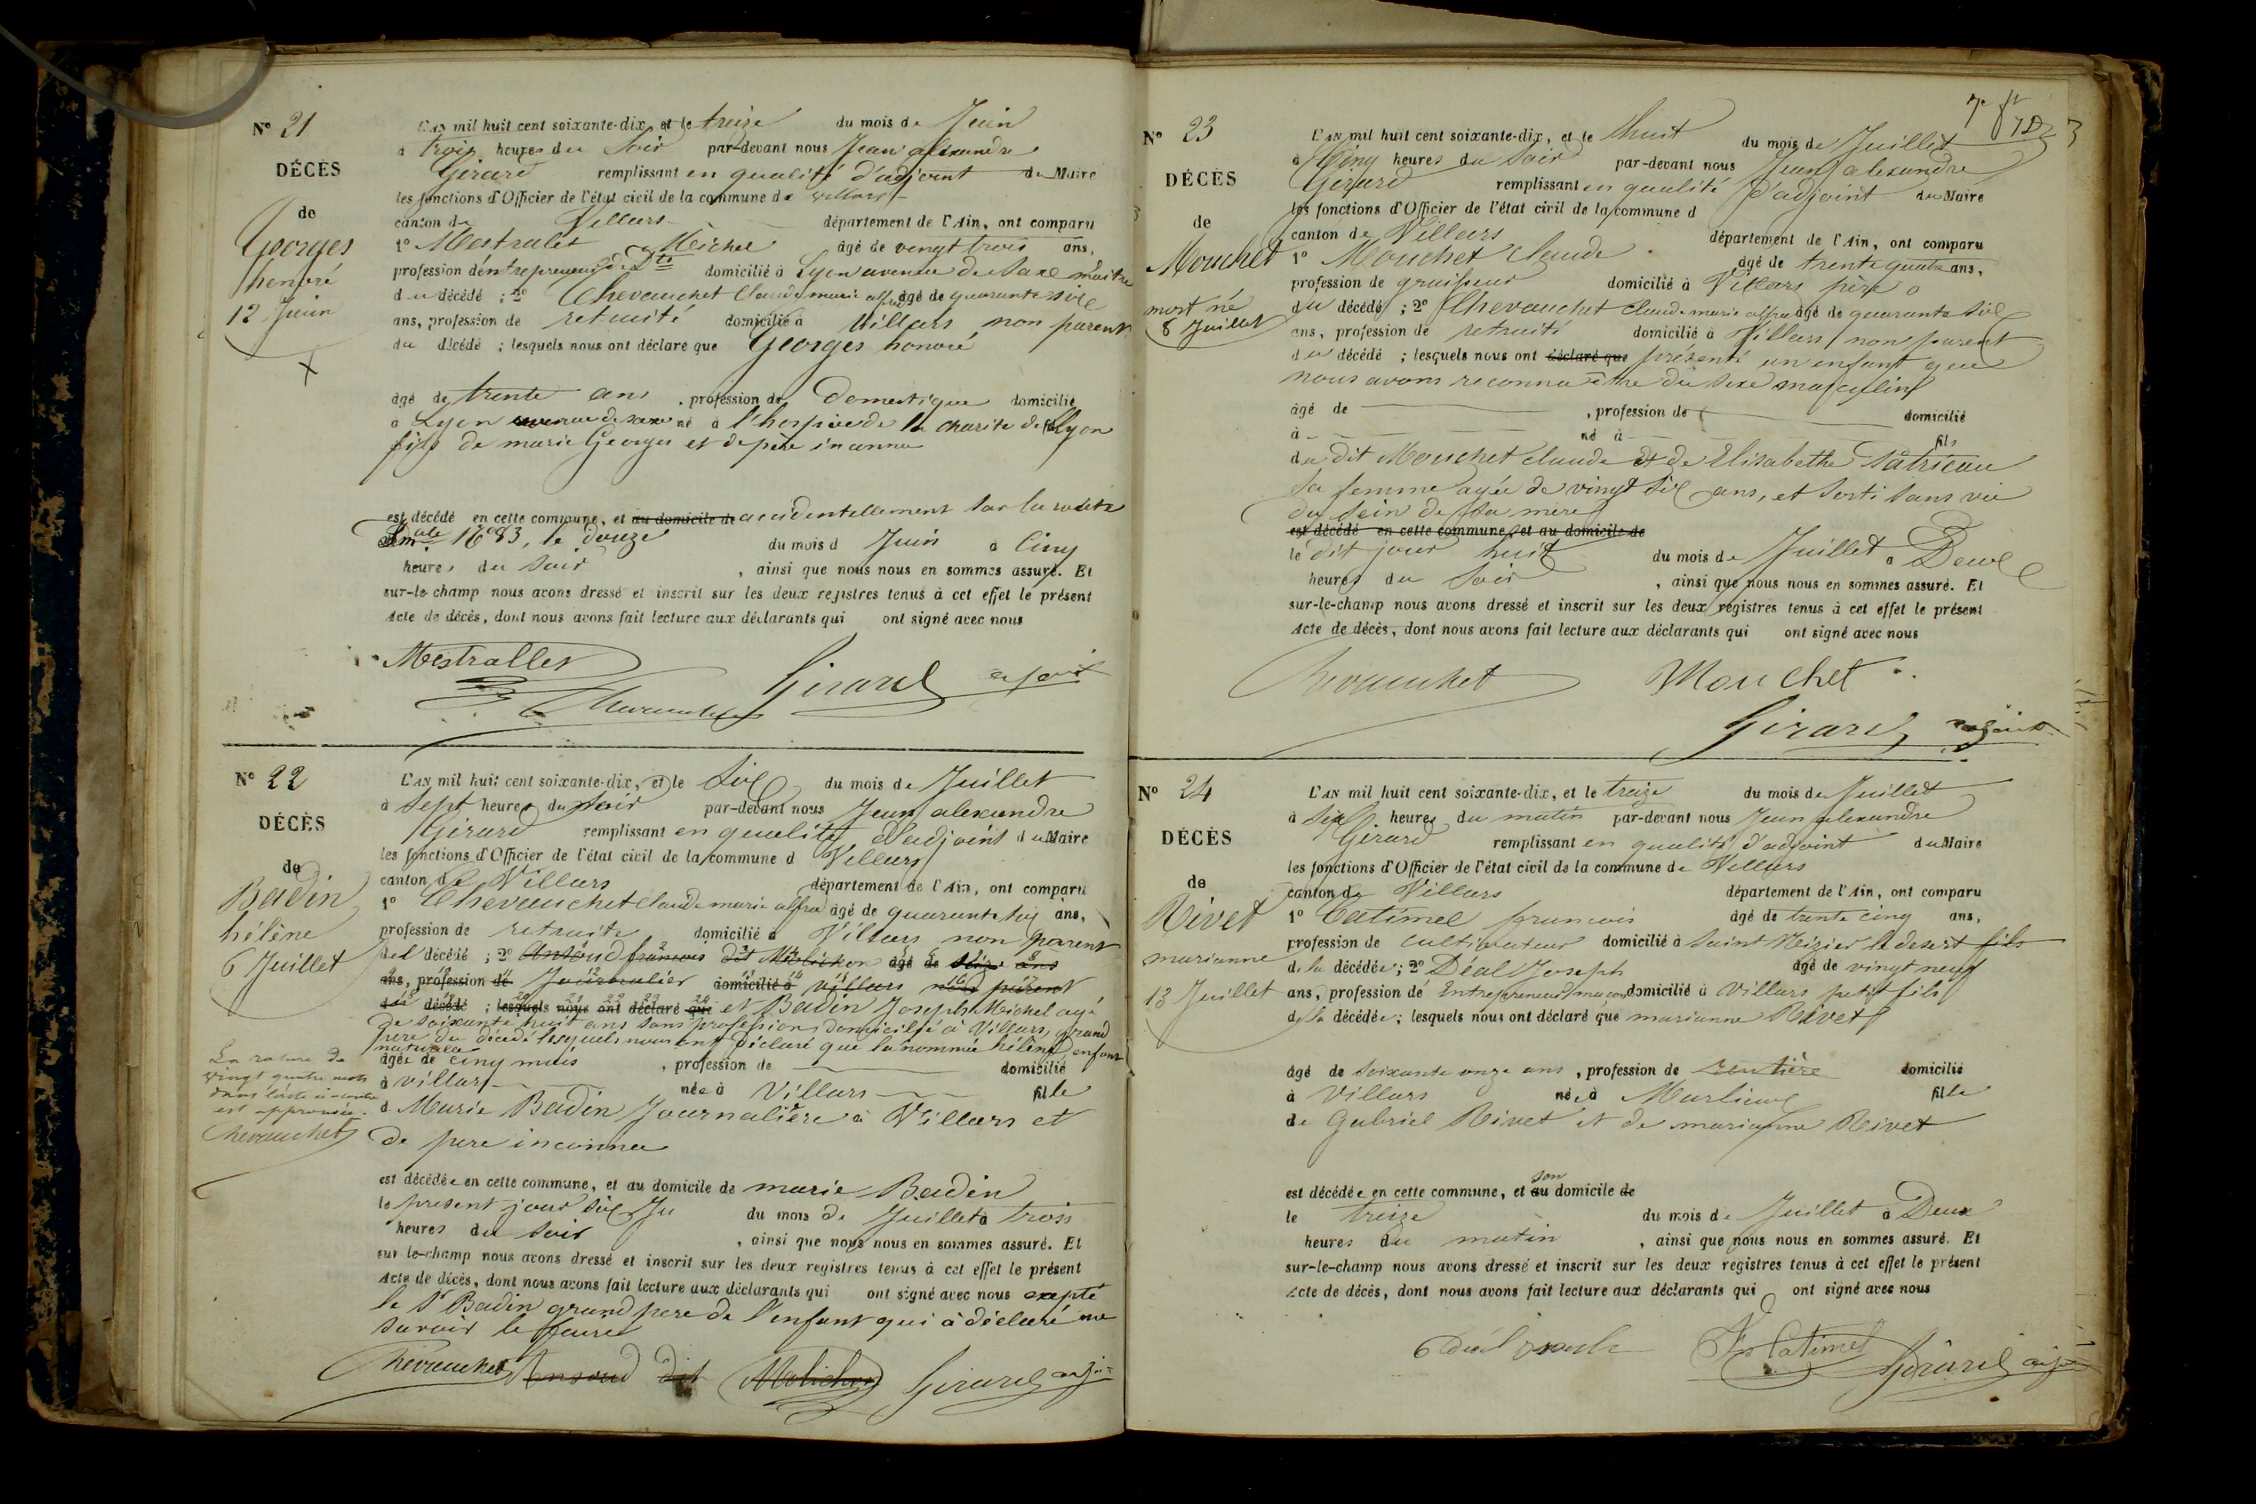 N° 21
DÉCÈS
de
Georges
honoré
12 Juin
L'AN mil huit cent soixante-dix, et le treize du mois de Juin
à trois heures du Soir par-devant nous Jean alexandre
Girard remplissant en qualité d'adjoint du Maire
les fonctions d'Officier de l'état civil de la commune de villars
canton de Villars département de l'Ain, ont comparu
1° Mestralet Michel âgé de vingt trois ans,
profession d'entrepreneur de domicilié à Lyon avenue de Saxe maitre
du décédé ; 2° Chevauchet Claude marie alfred âgé de quarante six
ans, profession de retraité domicilié à Villars non parent
du décédé ; lesquels nous ont déclaré que Georges honoré
âgé de trente ans, profession de Domestique domicilié
à Lyon avenue de saxe né à l'hospice de la charité de Lyon
fils de marie Georges et de père inconnu
est décédé en cette commune, et au domicile de accidentellement sur la route
16 83, le douze du mois d Juin à Cinq
heures du soir, ainsi que nous nous en sommes assuré. Et
sur-le-champ nous avons dressé et inscrit sur les deux registres tenus à cet effet le présent
Acte de décès, dont nous avons fait lecture aux déclarants qui ont signé avec nous
Mestrallet
Chevauchet Girard adjoint
N° 22
DÉCÈS
de
Badin
hélène
6 Juillet
L'AN mil huit cent soixante-dix, et le Six du mois de Juillet
à Sept heures du Soir par-devant nous Jean alexandre
Girard remplissant en qualité d'adjoint du Maire
les fonctions d'Officier de l'état civil de la commune d Villars
canton de Villars département de l'Ain, ont comparu
1° Chevauchet Claude marie alfred âgé de quarante six ans,
profession de retraité domicilié à Villars non parent
de l décédé ; 2° Antoud francois dit Molichon âgé de ans
ans, profession de Journalier domicilié à villars non parent
du décédé ; lesquels nous ont déclaré que et Badin Joseph Michel agé
de soixante huit ans sans profession domicilié à Villars, grand
père du décédé lesquels nous ont déclaré que la nommée hélène enfant
naturelle
âgée de cinq mois, profession de domicilié
à villars née à Villars fille
à Marie Badin Journalière à Villars et
de pere inconnu
La rature de
vingt quatre mots
dans l'acte ci contre
est approuvée.
Chevauchet
est décédée en cette commune, et au domicile de marie Badin
le présent jour six Ju du mois de Juillet à trois
heures du soir, ainsi que nous nous en sommes assuré. Et
sur-le-champ nous avons dressé et inscrit sur les deux registres tenus à cet effet le présent
Acte de décès, dont nous avons fait lecture aux déclarants qui ont signé avec nous excepté
le Sr Badin grand pere de l'enfant qui à déclaré ne
savoir le faire
Chevauchet Ansoud dit Molichon Girard adjt
N° 23
DÉCÈS
de
Mouchet
mort né
8 Juillet
L'AN mil huit cent soixante-dix, et le huit du mois de Juillet
à Cinq heures du Soir par-devant nous Jean alexandre
Girard remplissant en qualité d'adjoint du Maire
les fonctions d'Officier de l'état civil de la commune d
canton de Villars département de l'Ain, ont comparu
1° Mouchet Claude âgé de trente quatre ans,
profession de graisseur domicilié à Villars père
du décédé ; 2° Chevauchet Claude marie alfred âgé de quarante six
ans, profession de retraité domicilié à Villars non parent
du décédé ; lesquels nous ont déclaré que présenté un enfant que
nous avons reconnu être du sexe masculin
âgé de, profession de domicilié
à né à fils
du dit Mouchet claude et de Elisabethe Patricau
sa femme agée de vingt six ans, et sorti sans vie
du sein de sa mère
est décédé en cette commune, et au domicile de
le dit jour huit du mois de Juillet à Deux
heures du Soir, ainsi que nous nous en sommes assuré. Et
sur-le-champ nous avons dressé et inscrit sur les deux registres tenus à cet effet le présent
Acte de décès, dont nous avons fait lecture aux déclarants qui ont signé avec nous
Chevauchet Mouchet
Girard adjoint
N° 24
DÉCÈS
de
Rivet
marianne
13 Juillet
L'AN mil huit cent soixante-dix, et le treize du mois de Juillet
à Six heures du matin par-devant nous Jean alexandre
Girard remplissant en qualité d'adjoint du Maire
les fonctions d'Officier de l'état civil de la commune de Villars
canton de Villars département de l'Ain, ont comparu
1° Catimel francois âgé de trente cinq ans,
profession de cultivateur domicilié à Saint Nizier le desert fils
de la décédée ; 2° Déal Joseph âgé de vingt neuf
ans, profession de Entrepreneur macon domicilié à Villars petit fils
de la décédée ; lesquels nous ont déclaré que marianne Rivet
âgé de soixante onze ans, profession de rentière domicilié
à Villars née à Marlieux fille
de Gabriel Rivet et de marianne Rivet
est décédée en cette commune, et au son domicile de
le treize du mois de Juillet à Deux
heures du matin, ainsi que nous nous en sommes assuré. Et
sur-le-champ nous avons dressé et inscrit sur les deux registres tenus à cet effet le présent
Acte de décès, dont nous avons fait lecture aux déclarants qui ont signé avec nous
Déal Fs Catimel Girard adjt